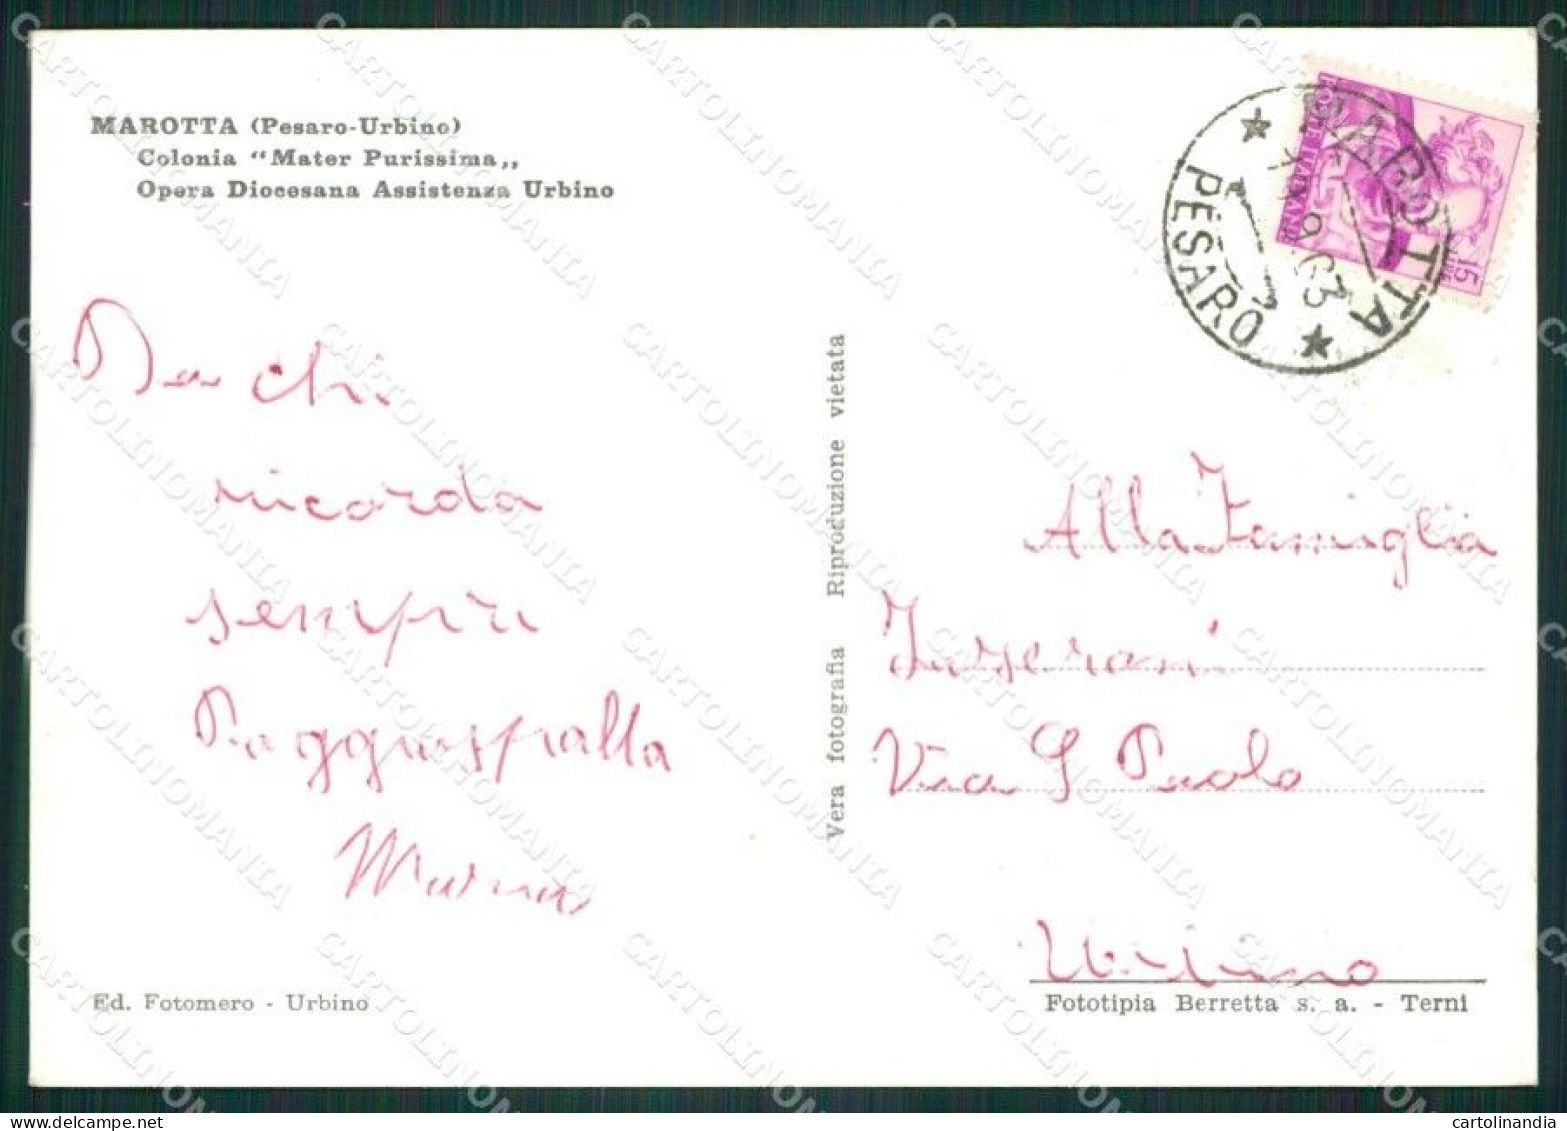 MAROTTA (Pesaro-Urbino)
Colonia "Mater Purissima,,
Opera Diocesana Assistenza Urbino
MAROTTA
PESARO
9.63
POSTE ITALIANE
LIRE 15
chi
ricorda
sempre
Vera fotografia Riproduzione vietata
Alla Famiglia
Via S Paolo
Urbino
Ed. Fotomero - Urbino
Fototipia Berretta s. a. - Terni
CARTOLINOMANIA
cartolinandia